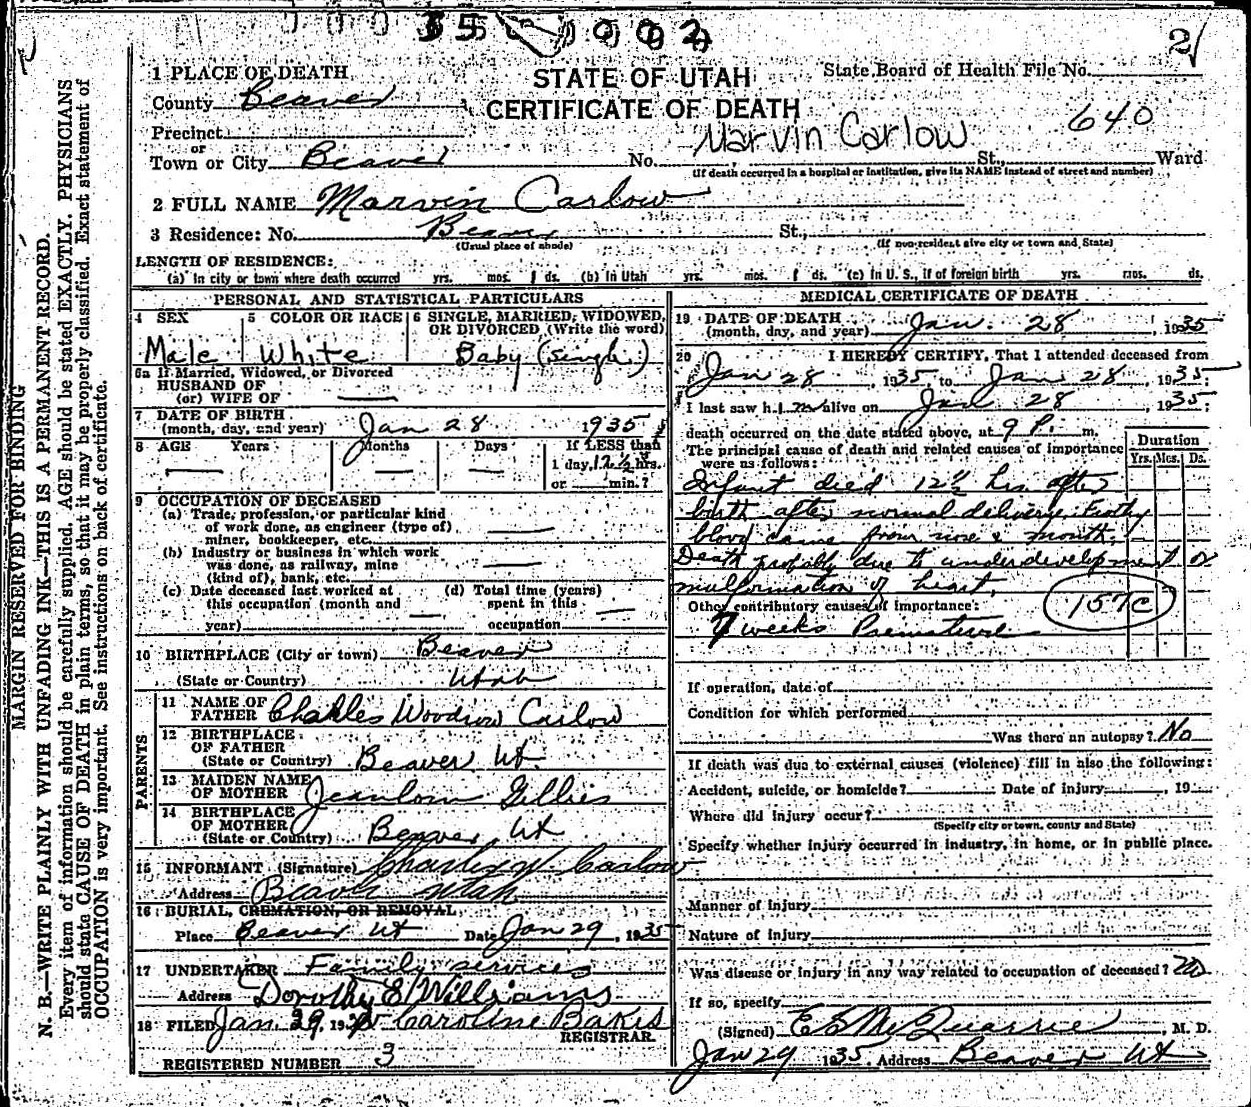 35 0 0 0 2
2
STATE OF UTAH
CERTIFICATE OF DEATH
State Board of Health File No.
640
1 PLACE OF DEATH
County Beaver
Precinct
or
Town or City Beaver No. Marvin Carlow St., Ward
(If death occurred in a hospital or institution, give its NAME instead of street and number)
2 FULL NAME Marvin Carlow
3 Residence: No. Beaver St.,
(Usual place of abode) (If non-resident give city or town and State)
LENGTH OF RESIDENCE:
(a) In city or town where death occurred yrs. mos. 1 ds. (b) In Utah yrs. mos. 1 ds. (c) In U. S., if of foreign birth yrs. mos. ds.
PERSONAL AND STATISTICAL PARTICULARS
4 SEX 5 COLOR OR RACE 6 SINGLE, MARRIED, WIDOWED, OR DIVORCED (Write the word)
Male White Baby (single)
6a If Married, Widowed, or Divorced
HUSBAND OF
(or) WIFE OF
7 DATE OF BIRTH
(month, day, and year) Jan 28 1935
8 AGE Years Months Days If LESS than
1 day, 12 1/2 hrs.
or min.?
9 OCCUPATION OF DECEASED
(a) Trade, profession, or particular kind
of work done, as engineer (type of)
miner, bookkeeper, etc.
(b) Industry or business in which work
was done, as railway, mine
(kind of), bank, etc.
(c) Date deceased last worked at
this occupation (month and
year)
(d) Total time (years)
spent in this
occupation
10 BIRTHPLACE (City or town) Beaver
(State or Country) Utah
PARENTS
11 NAME OF
FATHER Charles Woodrow Carlow
12 BIRTHPLACE
OF FATHER
(State or Country) Beaver Ut
13 MAIDEN NAME
OF MOTHER Gillies
14 BIRTHPLACE
OF MOTHER
(State or Country) Beaver Ut
15 INFORMANT (Signature) Charley W Carlow
Address Beaver Utah
16 BURIAL, CREMATION, OR REMOVAL,
Place Beaver Ut Date Jan 29, 1935
17 UNDERTAKER Family services
Address Dorothy E Williams
18 FILED Jan. 29, 19 Caroline Bakes
REGISTRAR.
REGISTERED NUMBER 3
MEDICAL CERTIFICATE OF DEATH
19 DATE OF DEATH
(month, day, and year) Jan. 28, 1935
20 I HEREBY CERTIFY, That I attended deceased from
Jan 28, 1935, to Jan 28, 1935;
I last saw him alive on Jan 28, 1935;
death occurred on the date stated above, at 9 P. m.
The principal cause of death and related causes of importance
were as follows:
Duration
Yrs. Mos. Ds.
Infant died 12 1/2 hrs. after
birth after normal delivery. Frothy
blood came from nose & mouth.
Death probably due to underdevelopment or
malformation of heart.
Other contributory causes of importance:
157c
7 weeks Premature
If operation, date of
Condition for which performed
Was there an autopsy? No
If death was due to external causes (violence) fill in also the following:
Accident, suicide, or homicide? Date of injury , 19
Where did injury occur?
(Specify city or town, county and State)
Specify whether injury occurred in industry, in home, or in public place.
Manner of injury
Nature of injury
Was disease or injury in any way related to occupation of deceased? No
If so, specify
(Signed) E S McQuarrie, M. D.
Jan 29 1935. Address Beaver Ut
MARGIN RESERVED FOR BINDING
N. B.—WRITE PLAINLY WITH UNFADING INK—THIS IS A PERMANENT RECORD.
Every item of information should be carefully supplied. AGE should be stated EXACTLY. PHYSICIANS
should state CAUSE OF DEATH in plain terms, so that it may be properly classified. Exact statement of
OCCUPATION is very important. See instructions on back of certificate.